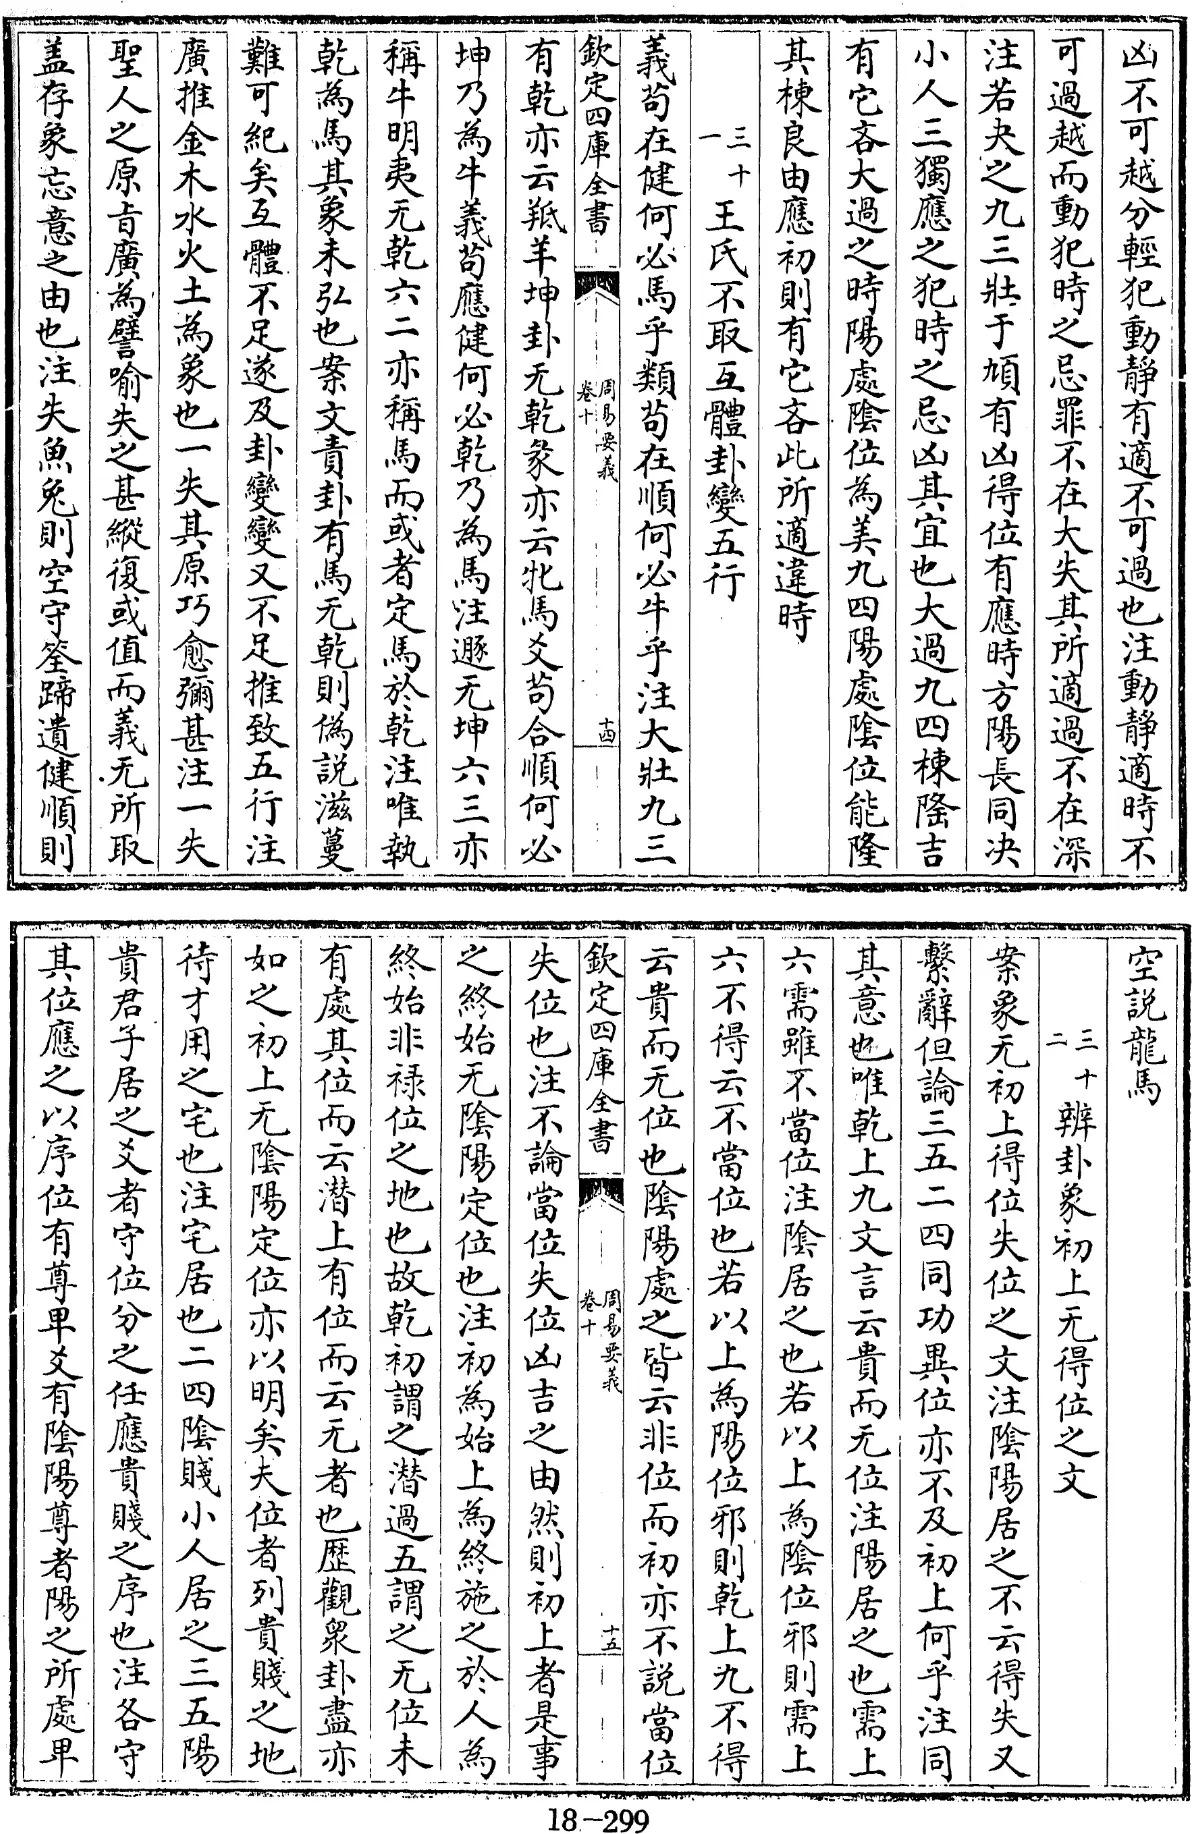 凶不可越分輕犯動靜有適不可過也注動靜適時不
可過越而動犯時之忌罪不在大失其所適過不在深
注若夬之九三壯于頄有凶得位有應時方陽長同决
小人三獨應之犯時之忌凶其宜也大過九四棟隆吉
有它吝大過之時陽處陰位為美九四陽處陰位能隆
其棟良由應初則有它吝此所適違時
三十一 王氏不取互體卦變五行
義茍在健何必馬乎類茍在順何必牛乎注大壯九三
欽定四庫全書 周易要義 卷十 十四
有乾亦云羝羊坤卦无乾彖亦云牝馬爻茍合順何必
坤乃為牛義茍應健何必乾乃為馬注遯无坤六三亦
稱牛明夷无乾六二亦稱馬而或者定馬於乾注唯執
乾為馬其象未弘也案文責卦有馬无乾則偽説滋蔓
難可紀矣互體不足遂及卦變變又不足推致五行注
廣推金木水火土為象也一失其原巧愈彌甚注一失
聖人之原旨廣為譬喻失之甚縱復或值而義无所取
盖存象忘意之由也注失魚兔則空守筌蹄遺健順則
空説龍馬
三十二 辨卦象初上无得位之文
案象无初上得位失位之文注陰陽居之不云得失又
繫辭但論三五二四同功異位亦不及初上何乎注同
其意也唯乾上九文言云貴而无位注陽居之也需上
六需雖不當位注陰居之也若以上為陰位邪則需上
六不得云不當位也若以上為陽位邪則乾上九不得
云貴而无位也陰陽處之皆云非位而初亦不説當位
欽定四庫全書 周易要義 卷十 十五
失位也注不論當位失位凶吉之由然則初上者是事
之終始无陰陽定位也注初為始上為終施之於人為
終始非禄位之地也故乾初謂之潜過五謂之无位未
有處其位而云潜上有位而云无者也歴觀衆卦盡亦
如之初上无陰陽定位亦以明矣夫位者列貴賤之地
待才用之宅也注宅居也二四陰賤小人居之三五陽
貴君子居之爻者守位分之任應貴賤之序也注各守
其位應之以序位有尊卑爻有陰陽尊者陽之所處卑
18-299